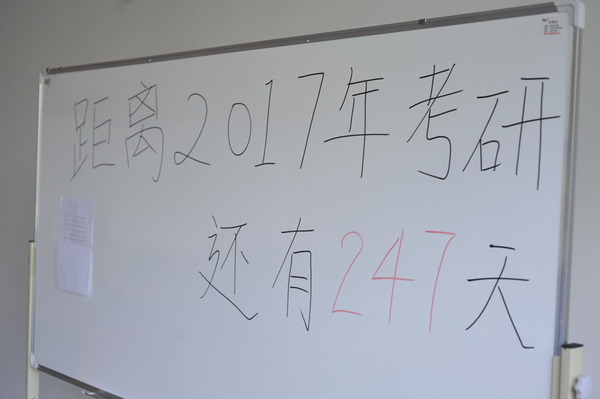 距离2017年考研
还有247天